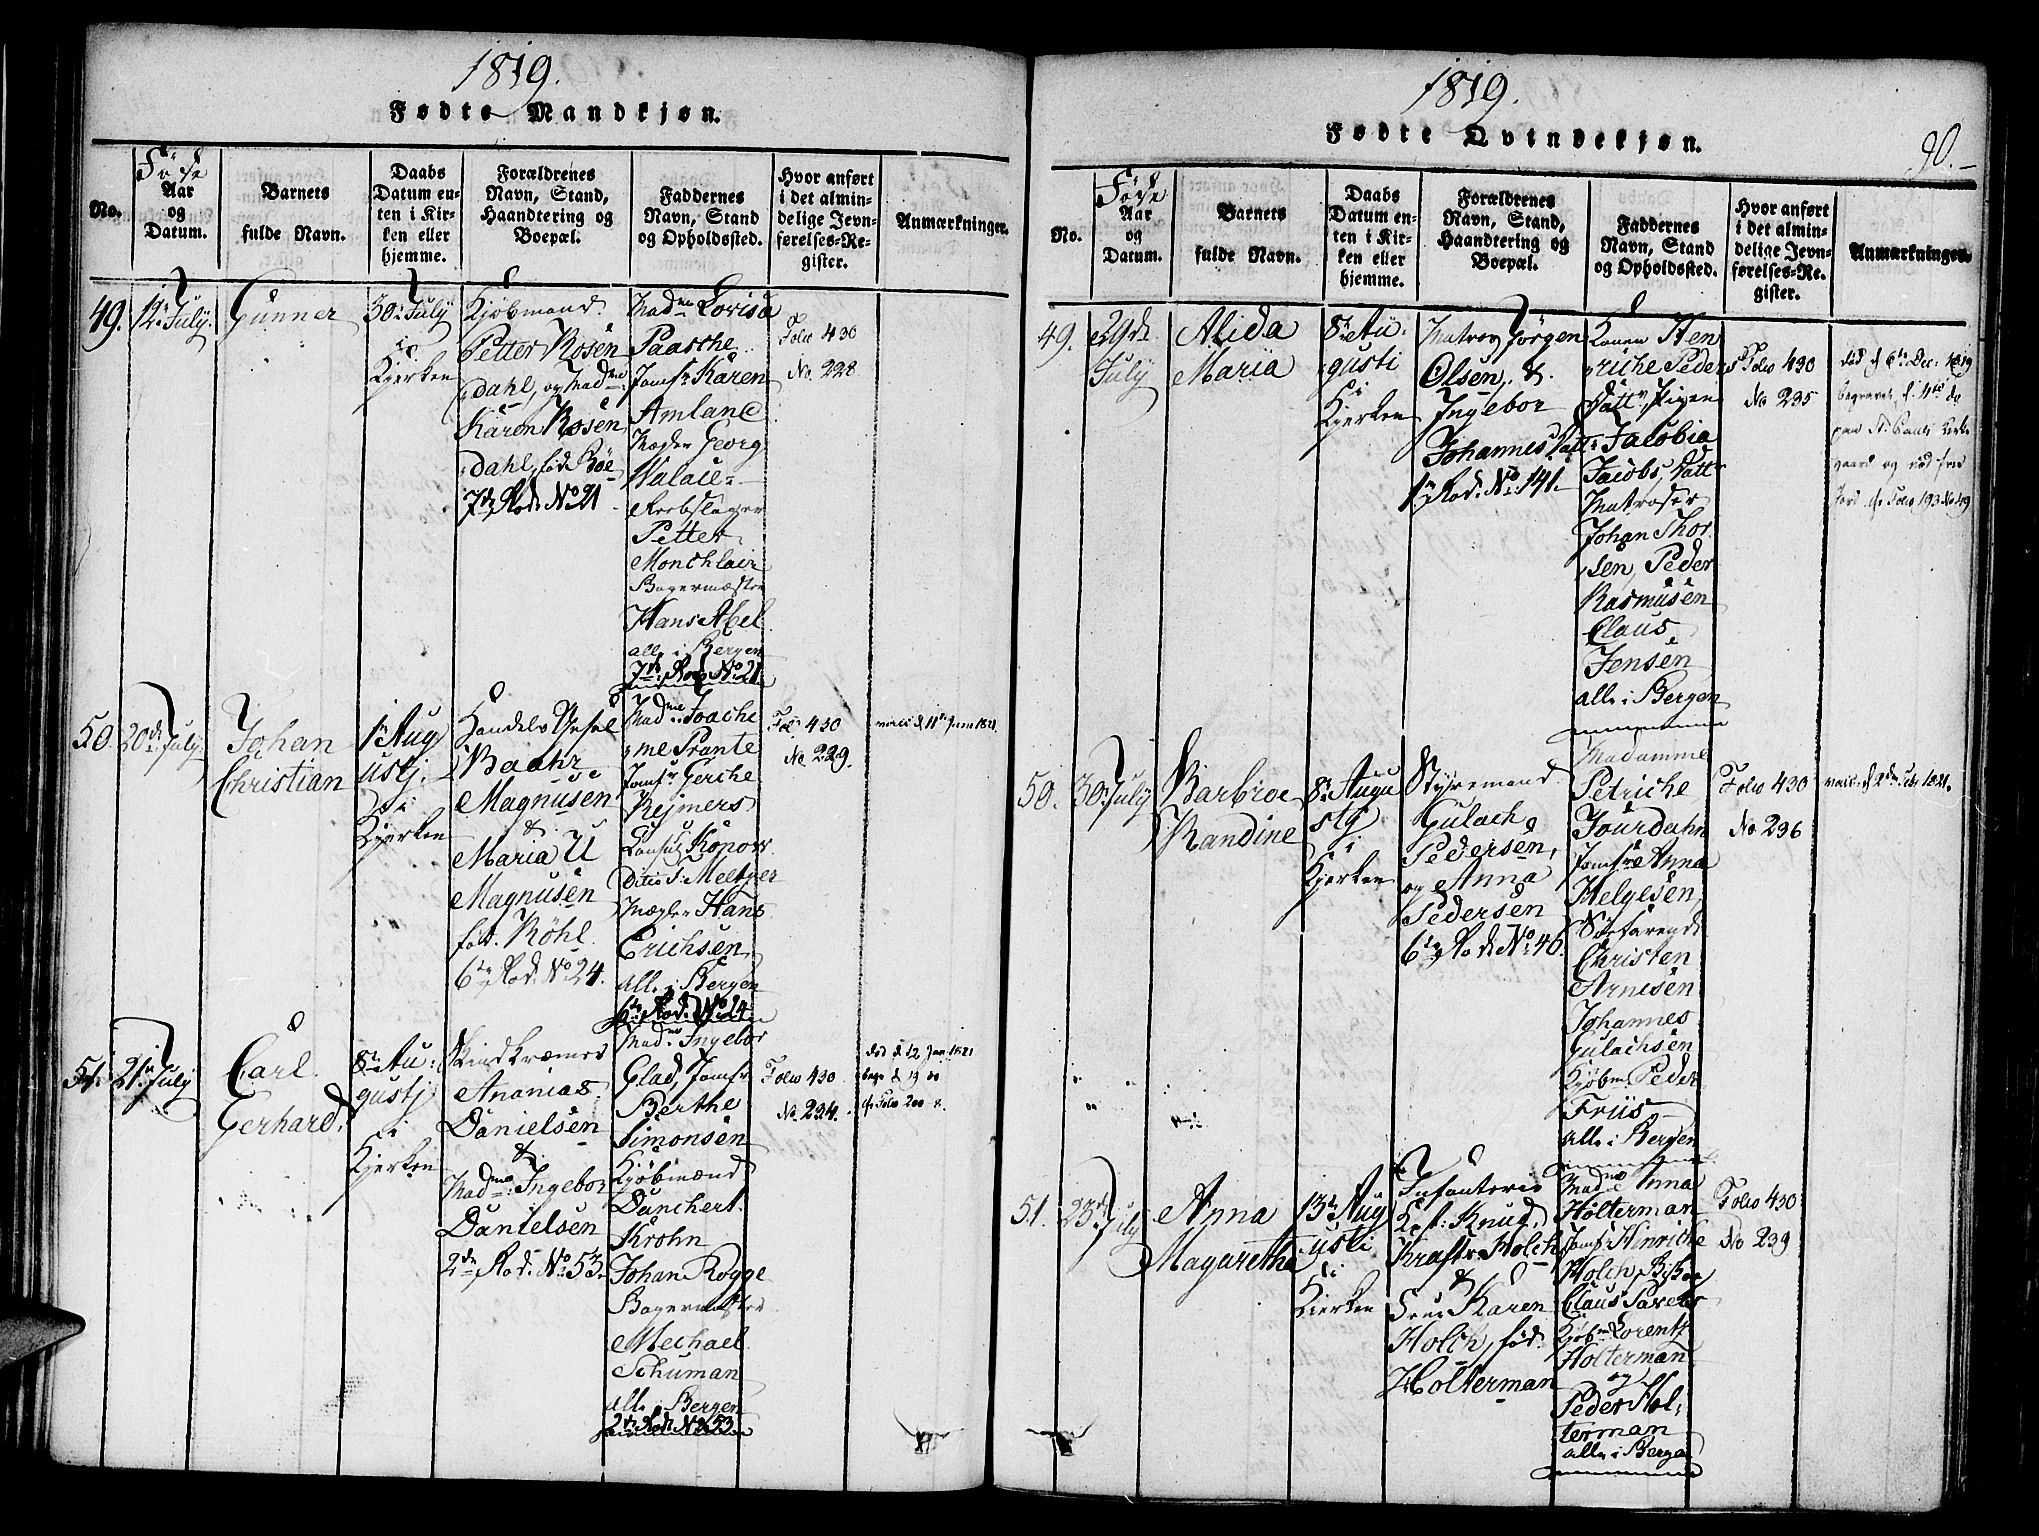 1819.
Fødte Mandkjøn.
Föde
No.
Aar
og
Datum.
Barnets
fulde Navn.
Daabs
Datum en-
ten i Kir-
ken eller
hjemme.
Forældrenes
Navn, Stand,
Haandtering og
Boepæl.
Faddernes
Navn, Stand
og Opholdssted.
Hvor anført
i det almin-
delige Jevn-
førelses-Re-
gister.
Anmærkninger.
49.
12te July.
Gunner
30te July
i
Kjerken
Kjøbmand
Petter Rosen
dahl, og Madme
Karen Rosen
dahl, fød Böe
7de Rode No 21
Madme Lovisa
Paasche
Jomfr Karen
Amland
Mægler Georg
Walace
Reebslager
Petter
Monchlair
Bagermæster
Hans Abel
alle i Bergen
7de Rode No 21
Folio 430
No. 228
50.
20de July.
Johan
Christian
1te Aug
ustj.
i
Kjerken
Handels Gesel
Baahr
Magnusen
&
Maria U
Magnusen
fød. Röhl.
6te Rode No 24.
Madme Joache
me Prante
Jomfr Gerche
Rejmers
Consul Konow
Ditto J. Meltzer
Mægler Hans
Erichsen
alle i Bergen
6te Rode No 24
Fol. 430
No. 229.
vacc. d 11te Juni 1821.
51.
21te July
Carl
Gerhard.
8te Au:
gustj
i
Kjerken
Kindkræmer
Ananias
Danielsen
&
Madme Ingebor
Danielsen
2de Rod. No 53.
Madme Ingebor
Glad, Jomfr
Berthe
Simonsen
Kjøbmænd
Danchert
Krohn
Johan Rogge
Bagermester
Mechael
Schuman
alle i Bergen
2de Rode No 53
Folio 430
No. 234.
død d 12 Jan 1821
begr d 19 do
cfr Folio 200
1819.
Fødte Qvindekjøn.
90.
Föde
No.
Aar
og
Datum.
Barnets
fulde Navn.
Daabs
Datum en-
ten i Kir-
ken eller
hjemme.
Forældrenes
Navn, Stand,
Haandtering og
Boepæl.
Faddernes
Navn, Stand
og Opholdssted.
Hvor anført
i det almin-
delige Jevn-
førelses-Re-
gister.
Anmærkninger.
49.
29de
July
Alida
Maria
8te Au:
gusti
i
Kjerken
Matros Jörgen
Olsen, &
Ingebor
Johannes Datt:
1te Rod. No. 141.
Konen Hen
riche Peder
Datt, Pigen
Jacobia
Jacobs Datt
Matroser
Johan Thor
sen, Peder
Rasmusen
Claus
Jensen
alle i Bergen
Folio 430
No 235
død d 6te Dec: 1819
begravet d. 11te do
paa St. Pauli Kirke
gaard
jord cfr Folio 193 No 49
50.
30te July
Barbroe
Randine
8te Augu
stg
i
Kjerken
Styrmand
Gulach
Pedersen,
og Anna
Pedersen
6te Rode No 46.
Madamme
Petriche
Jourdahn
Jomfrue Anna
Helgesen
Søefarende
Christen
Arnesen
Johannes
Gulachsen
Kjøbm. Peder
Friis
alle i Bergen
Folio 430
No 236
51.
23de July
Anna
Magaretha
13te Aug
usti
i
Kjerken
Infanterie
Capt: Knud
Krafts Holch
&
Frue Karen
Holch, fød.
Holterman
Madme Anna
Holterman
Jomfr Hinriche
Holch, Biskop
Claus Pavels
Kjøbm Lorentz
Holterman
og
Peder Hol:
terman
alle i Bergen
Folio 430
No 239